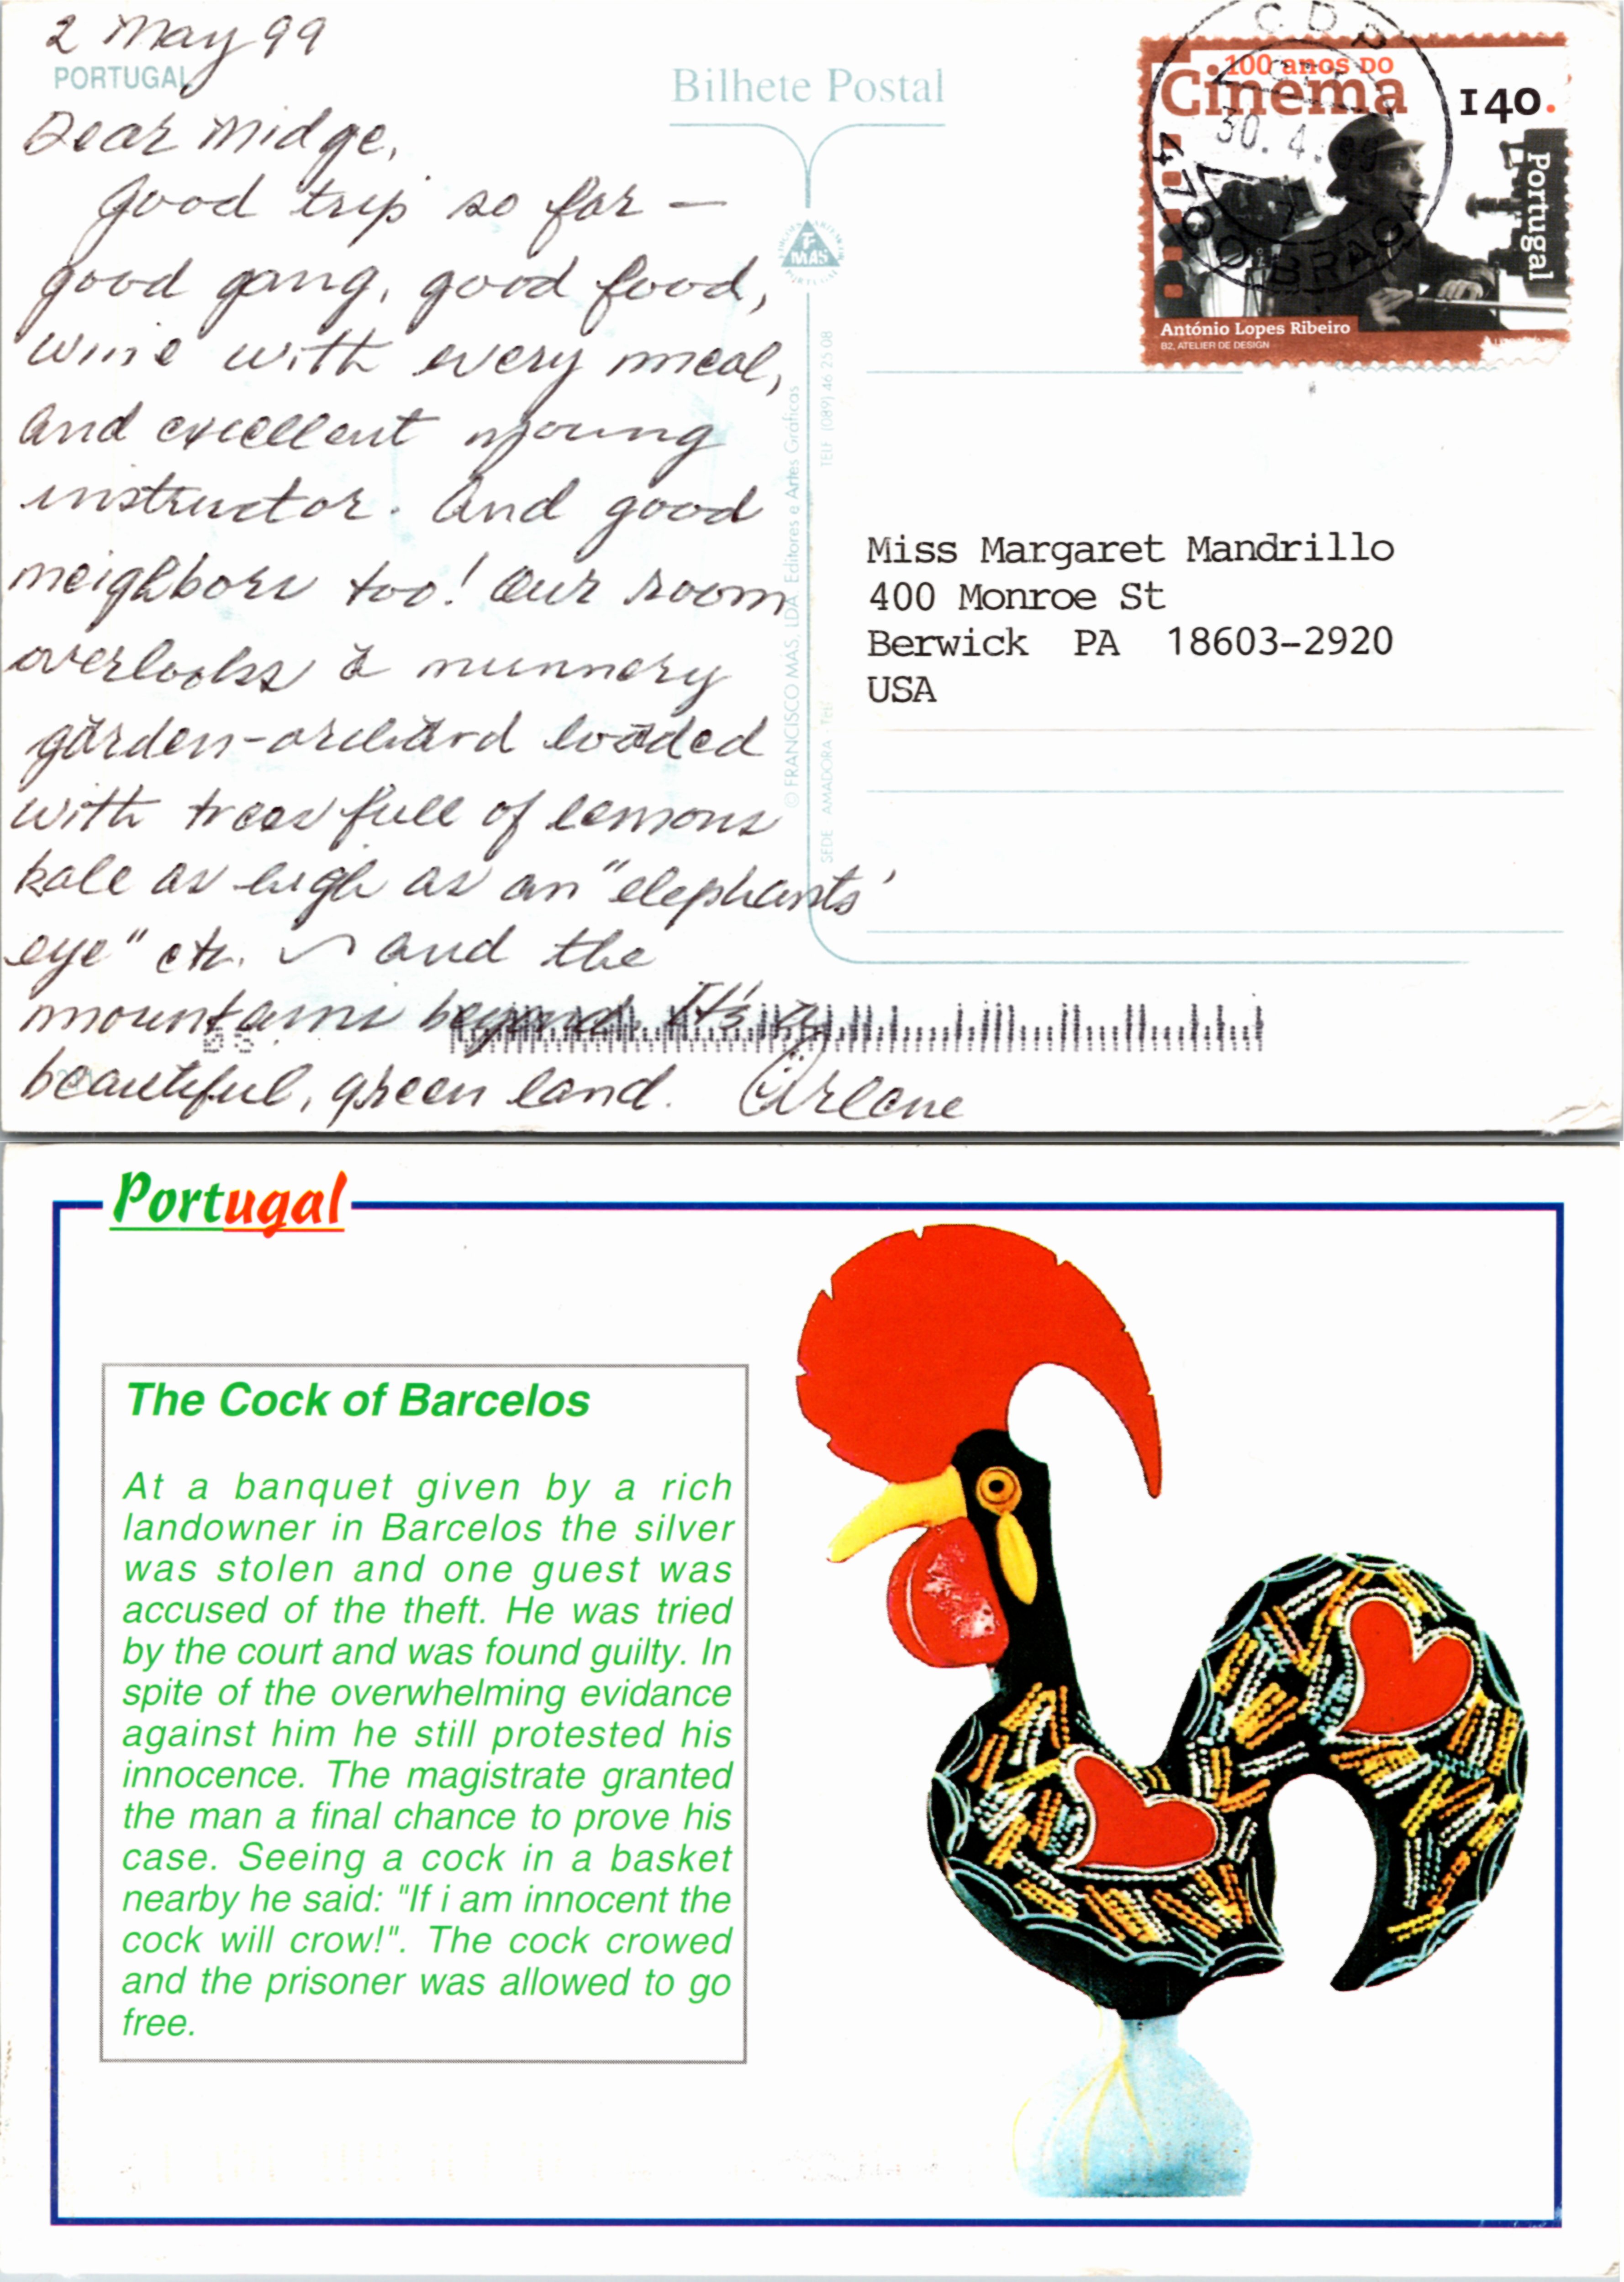 2 May 99
PORTUGAL
Dear Midge,
Good trip so far —
good gang, good food,
wine with every meal,
and excellent young
instructor. And good
neighbors too! Our room
overlooks a nunnery
garden-orchard loaded
with trees full of lemons
kale as high as an "elephants'
eye" etc. and the
mountains beyond. It's a
beautiful, green land. Arlene
Bilhete Postal
F
MAS
PORTUGAL
© FRANCISCO MÁS, LDA Editores e Artes Gráficas
SEDE AMADORA - Telf
TELF (089) 46 25 08
100 anos DO
Cinema
140.
Portugal
António Lopes Ribeiro
B2, ATELIER DE DESIGN
CDP
30. 4. 99
4700 BRAG
Miss Margaret Mandrillo
400 Monroe St
Berwick PA 18603-2920
USA
Portugal
The Cock of Barcelos
At a banquet given by a rich
landowner in Barcelos the silver
was stolen and one guest was
accused of the theft. He was tried
by the court and was found guilty. In
spite of the overwhelming evidance
against him he still protested his
innocence. The magistrate granted
the man a final chance to prove his
case. Seeing a cock in a basket
nearby he said: "If i am innocent the
cock will crow!". The cock crowed
and the prisoner was allowed to go
free.